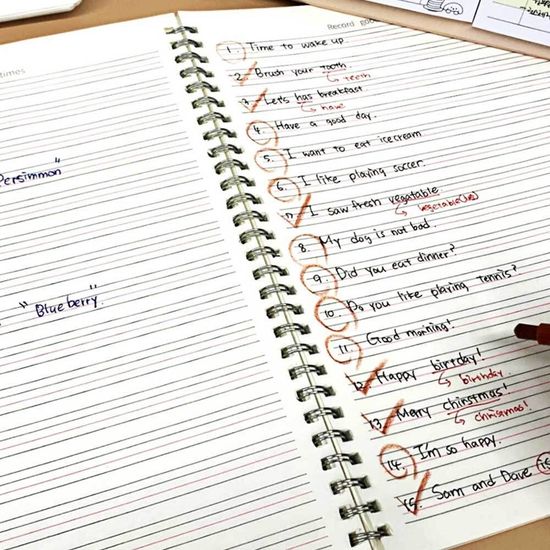 times
Persimmon"
"Blueberry".
Record
1. Time to wake up.
2. Brush your tooth.
teeth
3. Let's has breakfast
have
4. Have a good day.
5. I want to eat icecream
6. I like playing soccer.
7. I saw fresh vegatable.
vegetable(les)
8. My dog is not bad.
9. Did you eat dinner?
10. Do you like playing tennis?
11. Good morning!
12. Happy birtday!
birthday.
13. Merry chirstmas!
christmas!
14. I'm so happy.
15. Sam and Dave